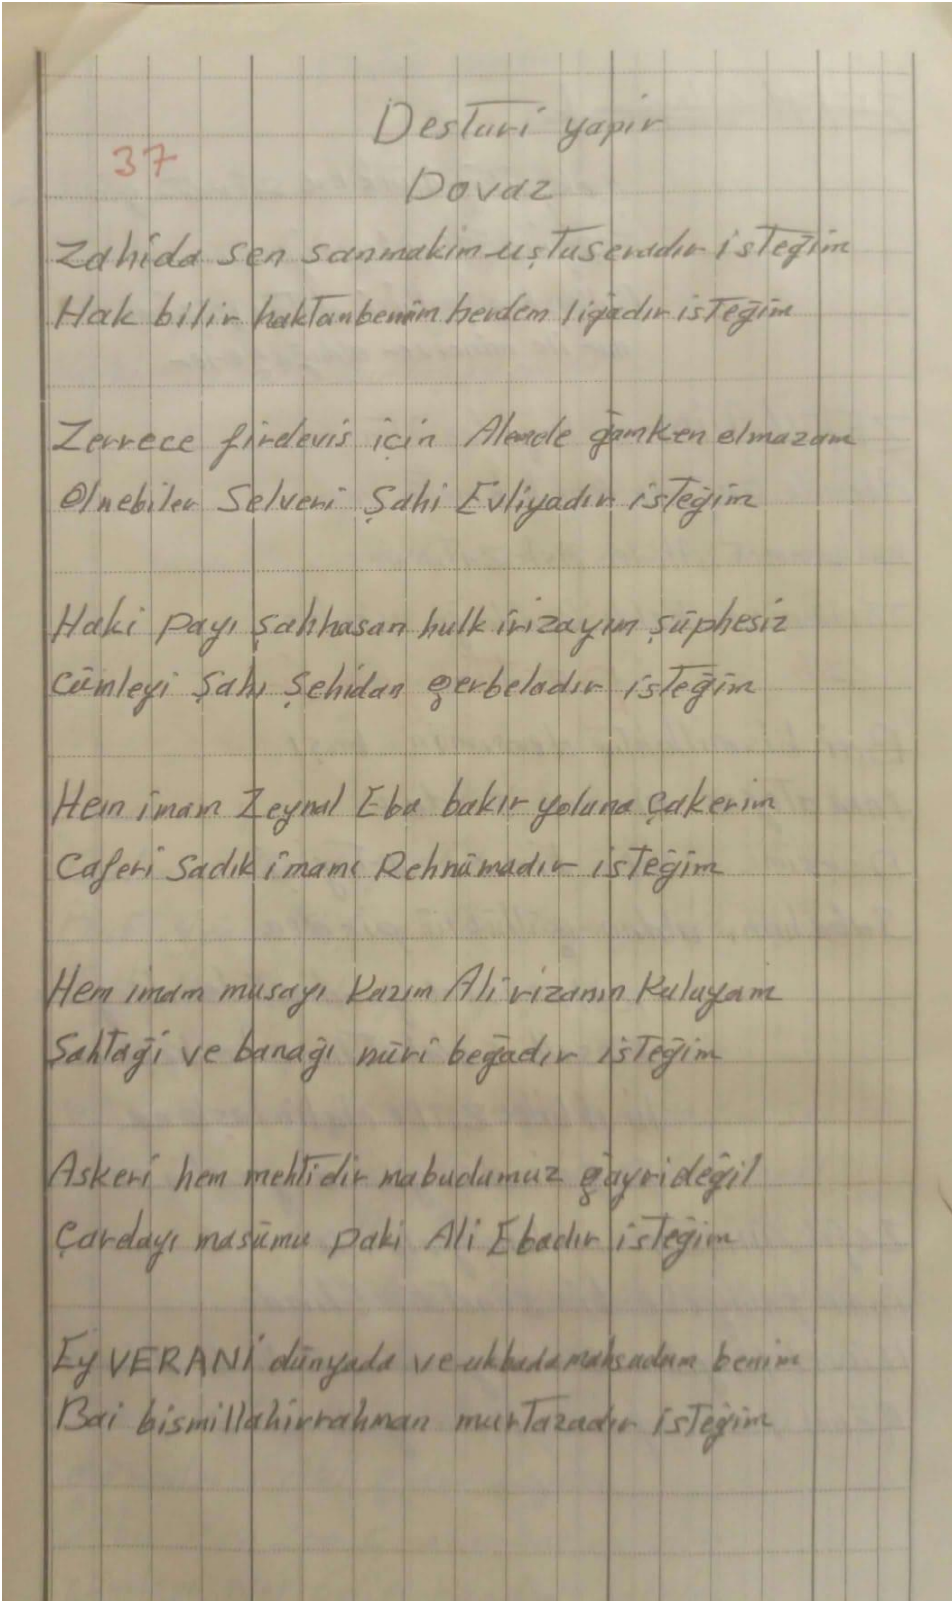 Desturi yapir
37
Dovaz
Zahida sen sanmakim uştuseradır isteğim
Hak bilir haktanbenim herdem ligadır isteğim
Zerrece firdevis için Alemde ğamken olmazam
Olnebiler Selveri Şahi Evliyadır isteğim
Haki payı şahhasan hulk irizayım şüphesiz
Cümleyi Şahı Şehidan gerbeladır isteğim
Hem imam Zeynal Eba bakır yoluna Çakerim
Caferi Sadık imamı Rehnümadır isteğim
Hem imam musayı Kazım Ali rizanın Kuluyam
Şahtaği ve banağı nüri beğadır isteğim
Askeri hem mehtidir mabudumuz gayri değil
Çardayı masümu paki Ali Ebadır isteğim
Ey VERANİ dünyada ve ukbada maksadum benim
Bai bismillahirrahman murtazadır isteğim